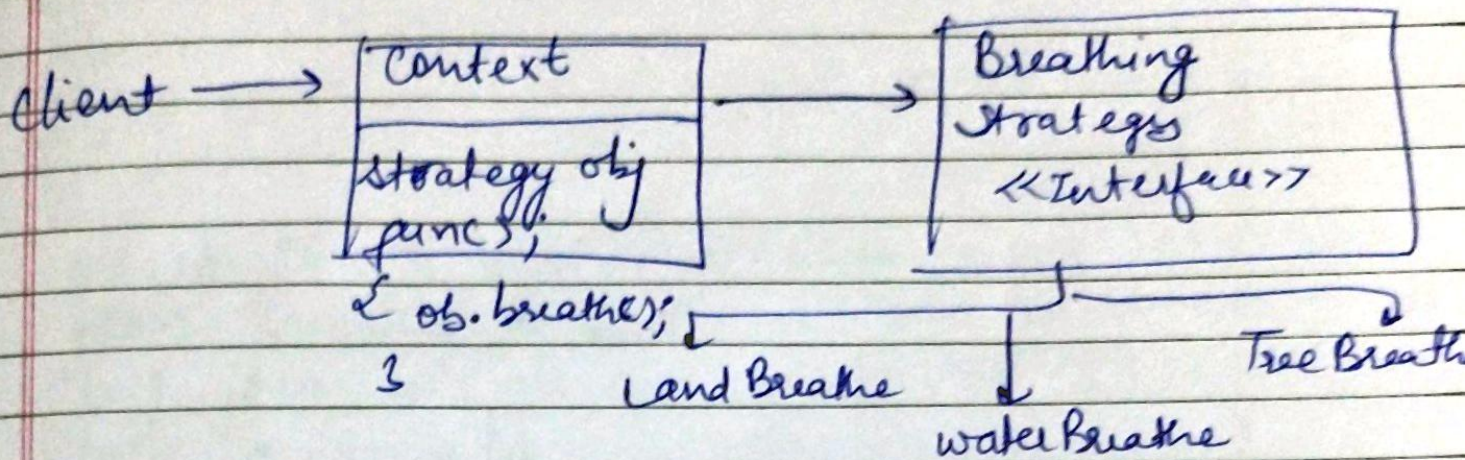 Client
Context
Strategy obj
func();
{ ob.breathe();
}
Breathing
Strategy
<<Interface>>
Land Breathe
water Breathe
Tree Breath